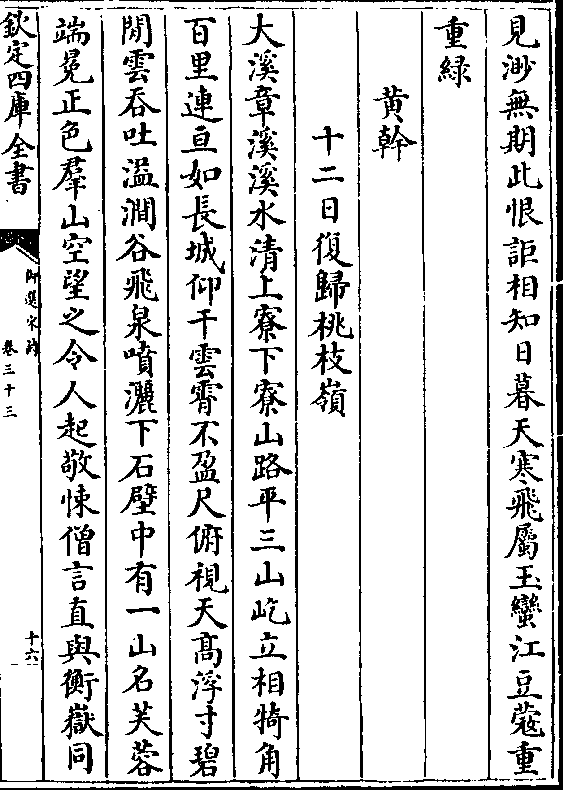 見渺無期此恨詎相知日暮天寒飛屬玉蠻江豆蔻重
重緑
黄幹
十二日復歸桃枝嶺
大溪章溪溪水清上寮下寮山路平三山屹立相犄角
百里連亘如長城仰干雲霄不盈尺俯視天髙浮寸碧
閒雲吞吐溢澗谷飛泉噴灑下石壁中有一山名芙蓉
端冕正色羣山空望之令人起敬悚僧言直與衡嶽同
欽定四庫全書
御選宋詩
卷三十三
十六